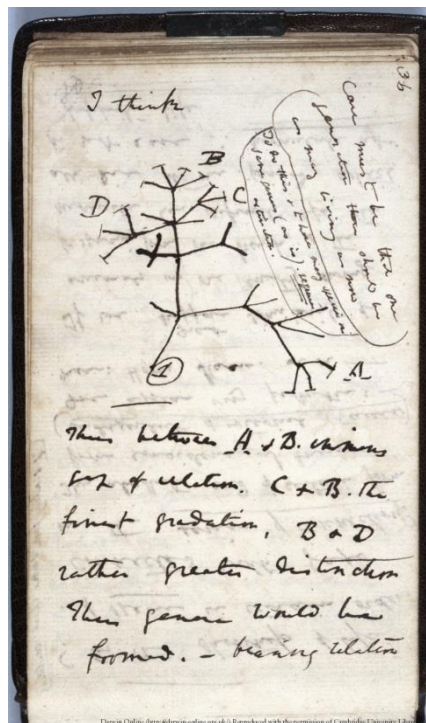 36
I think
Case must be that one
generation then should be
as many living as now
To do this & to have many species in
same genus (as is) requires
extinction.
B
C
D
A
1
Thus between A & B. immens
gap of relation. C & B. the
finest gradation, B & D
rather greater distinction
Thus genera would be
formed. — bearing relation
Darwin Online (http://darwin-online.org.uk/) Reproduced with the permission of Cambridge University Library